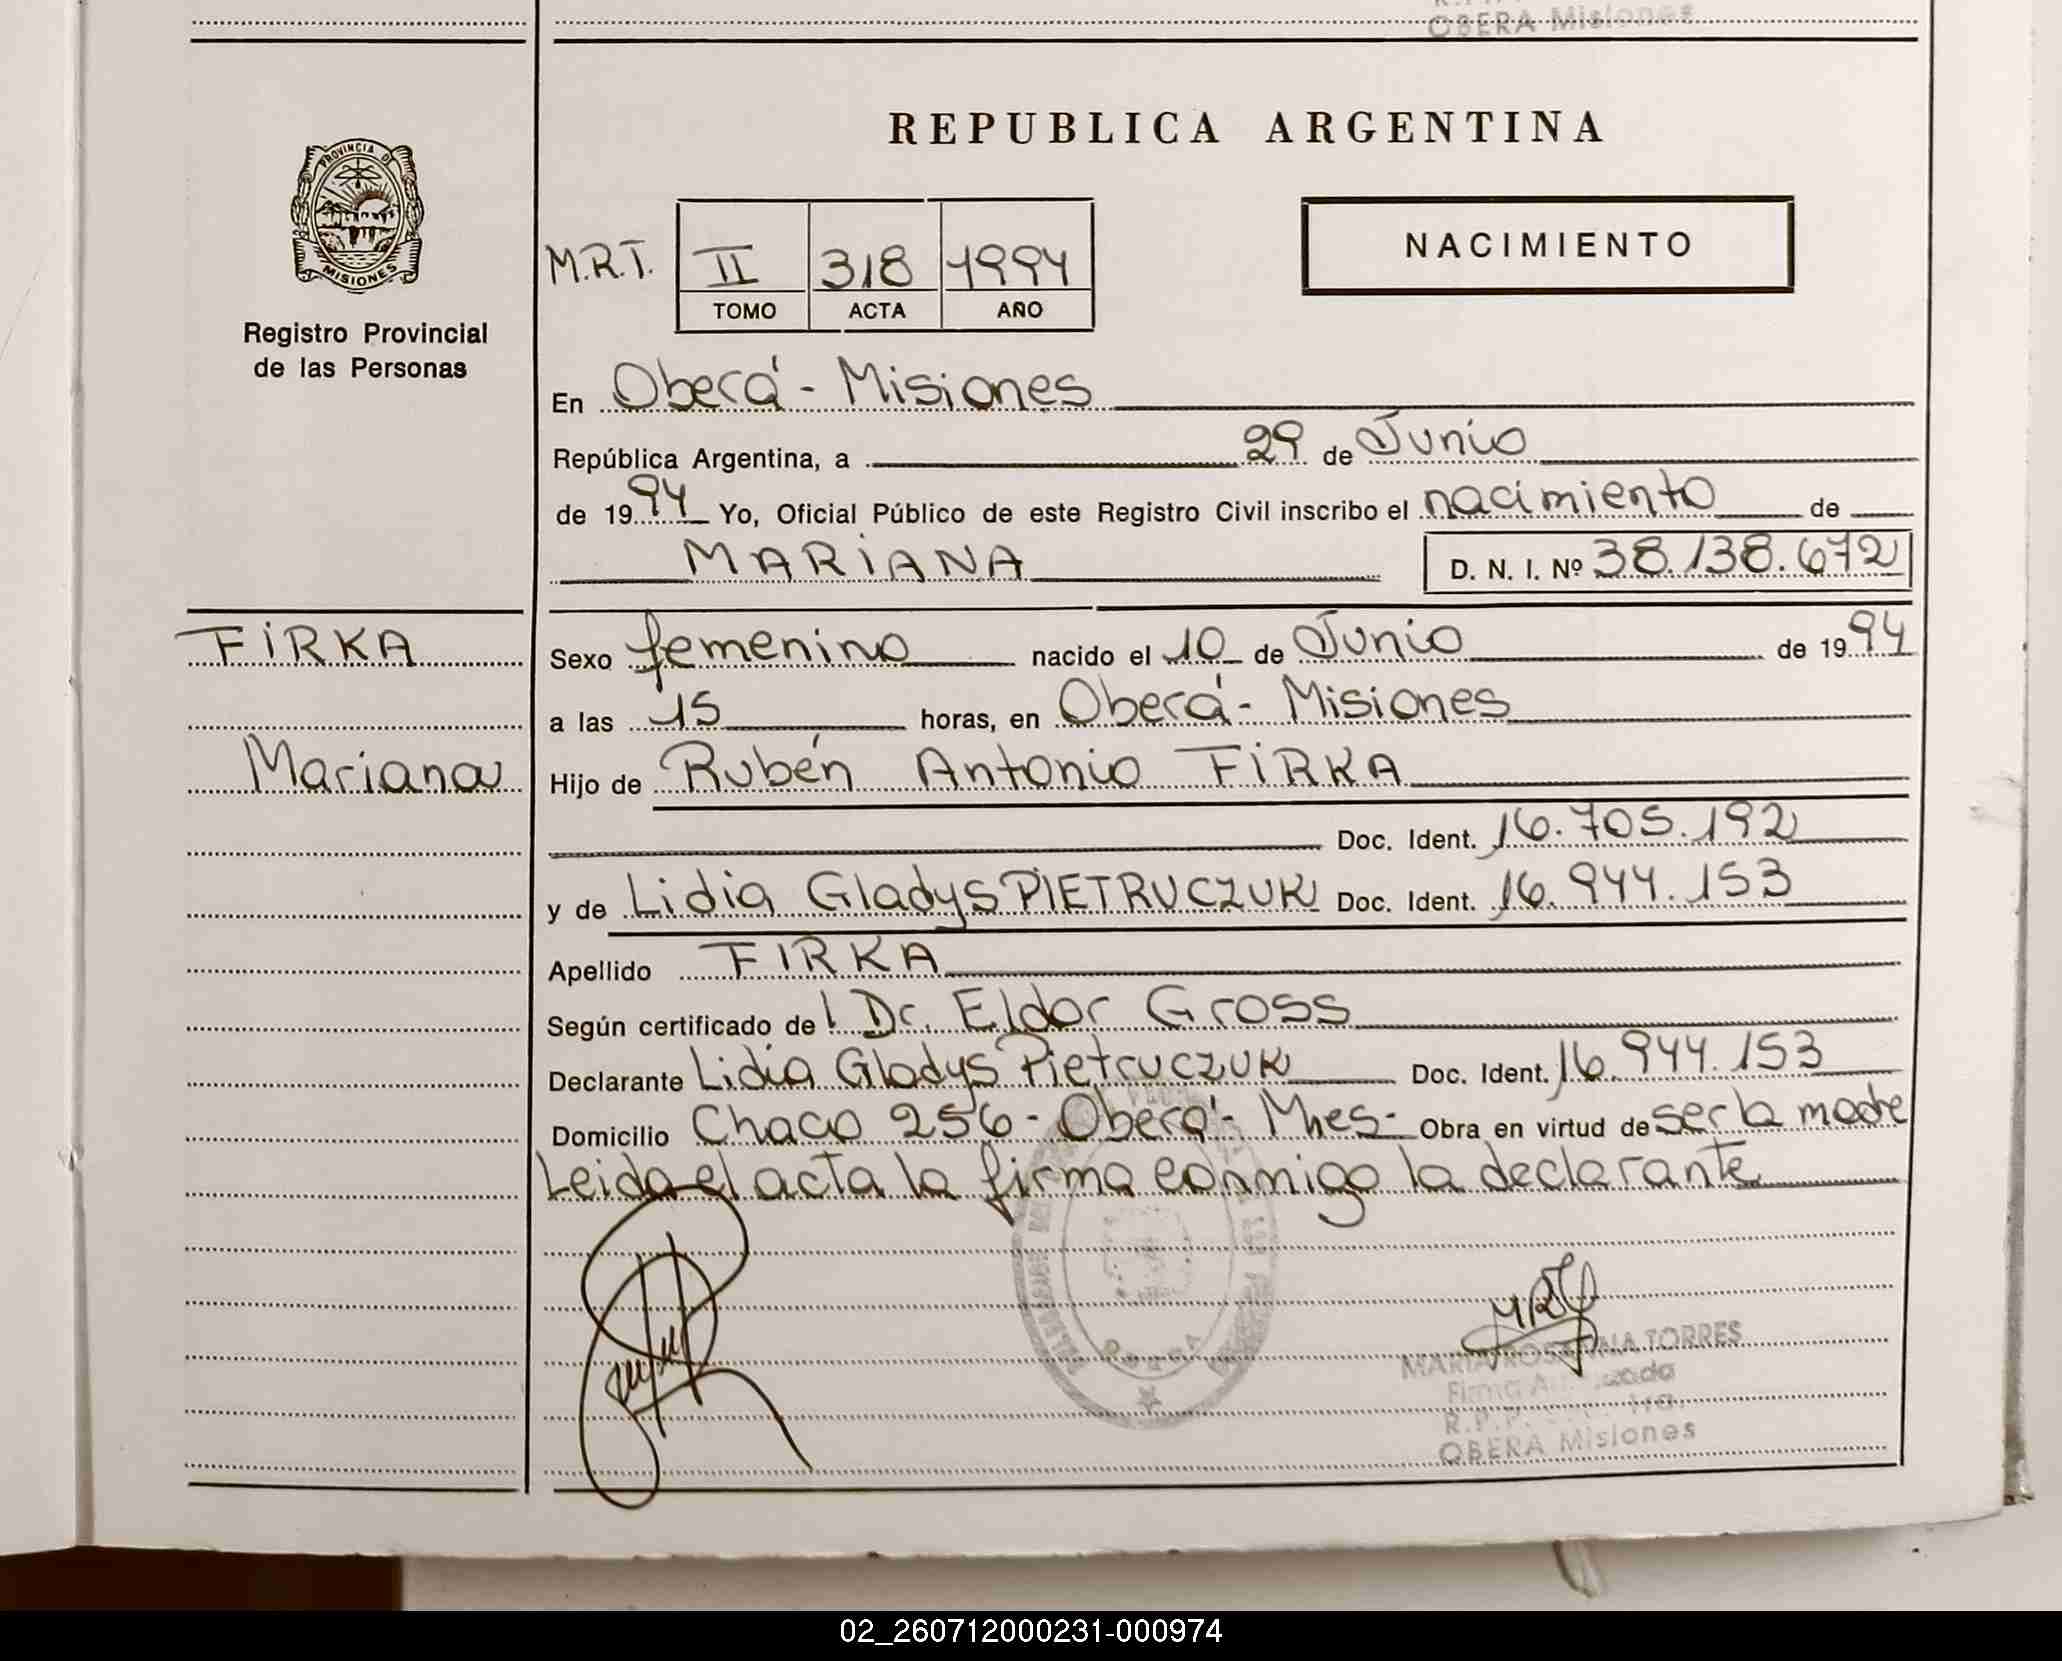 OBERA Misiones
PROVINCIA DE
MISIONES
Registro Provincial
de las Personas
REPUBLICA ARGENTINA
M.R.T. II 318 1994
TOMO ACTA AÑO
NACIMIENTO
En Oberá - Misiones
República Argentina, a 29 de Junio
de 1994 Yo, Oficial Público de este Registro Civil inscribo el nacimiento de
MARIANA D. N. I. Nº 38.138.672
FIRKA
Mariana
Sexo femenino nacido el 10 de Junio de 1994
a las 15 horas, en Oberá - Misiones
Hijo de Rubén Antonio FIRKA
Doc. Ident. 16.705.192
y de Lidia Gladys PIETRUCZUK Doc. Ident. 16.944.153
Apellido FIRKA
Según certificado de l Dr. Eldor Gross
Declarante Lidia Gladys Pietruczuk Doc. Ident. 16.944.153
Domicilio Chaco 256 - Oberá - Mnes - Obra en virtud de ser la madre
Leida el acta la firma conmigo la declarante
MARIA ROSANNA TORRES
Firma
R.P.P.
OBERA Misiones
02_260712000231-000974